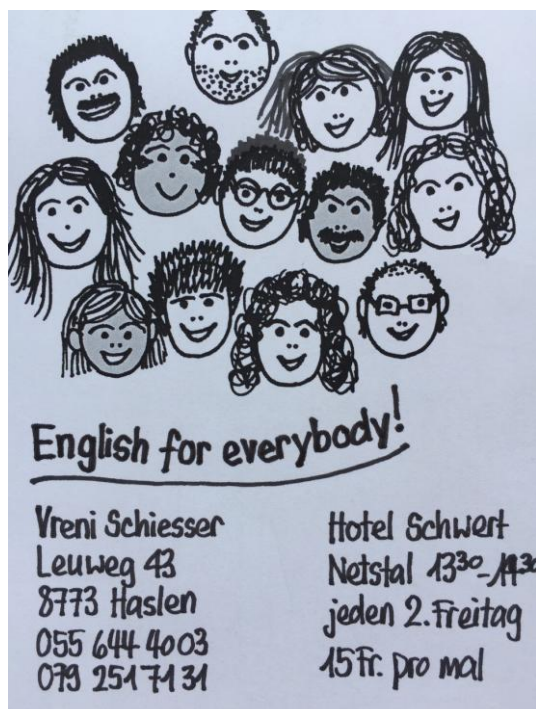 English for everybody!
Vreni Schiesser
Leuweg 43
8773 Haslen
055 644 40 03
079 251 71 31
Hotel Schwert
Netstal 13³⁰-14³⁰
jeden 2. Freitag
15 Fr. pro mal